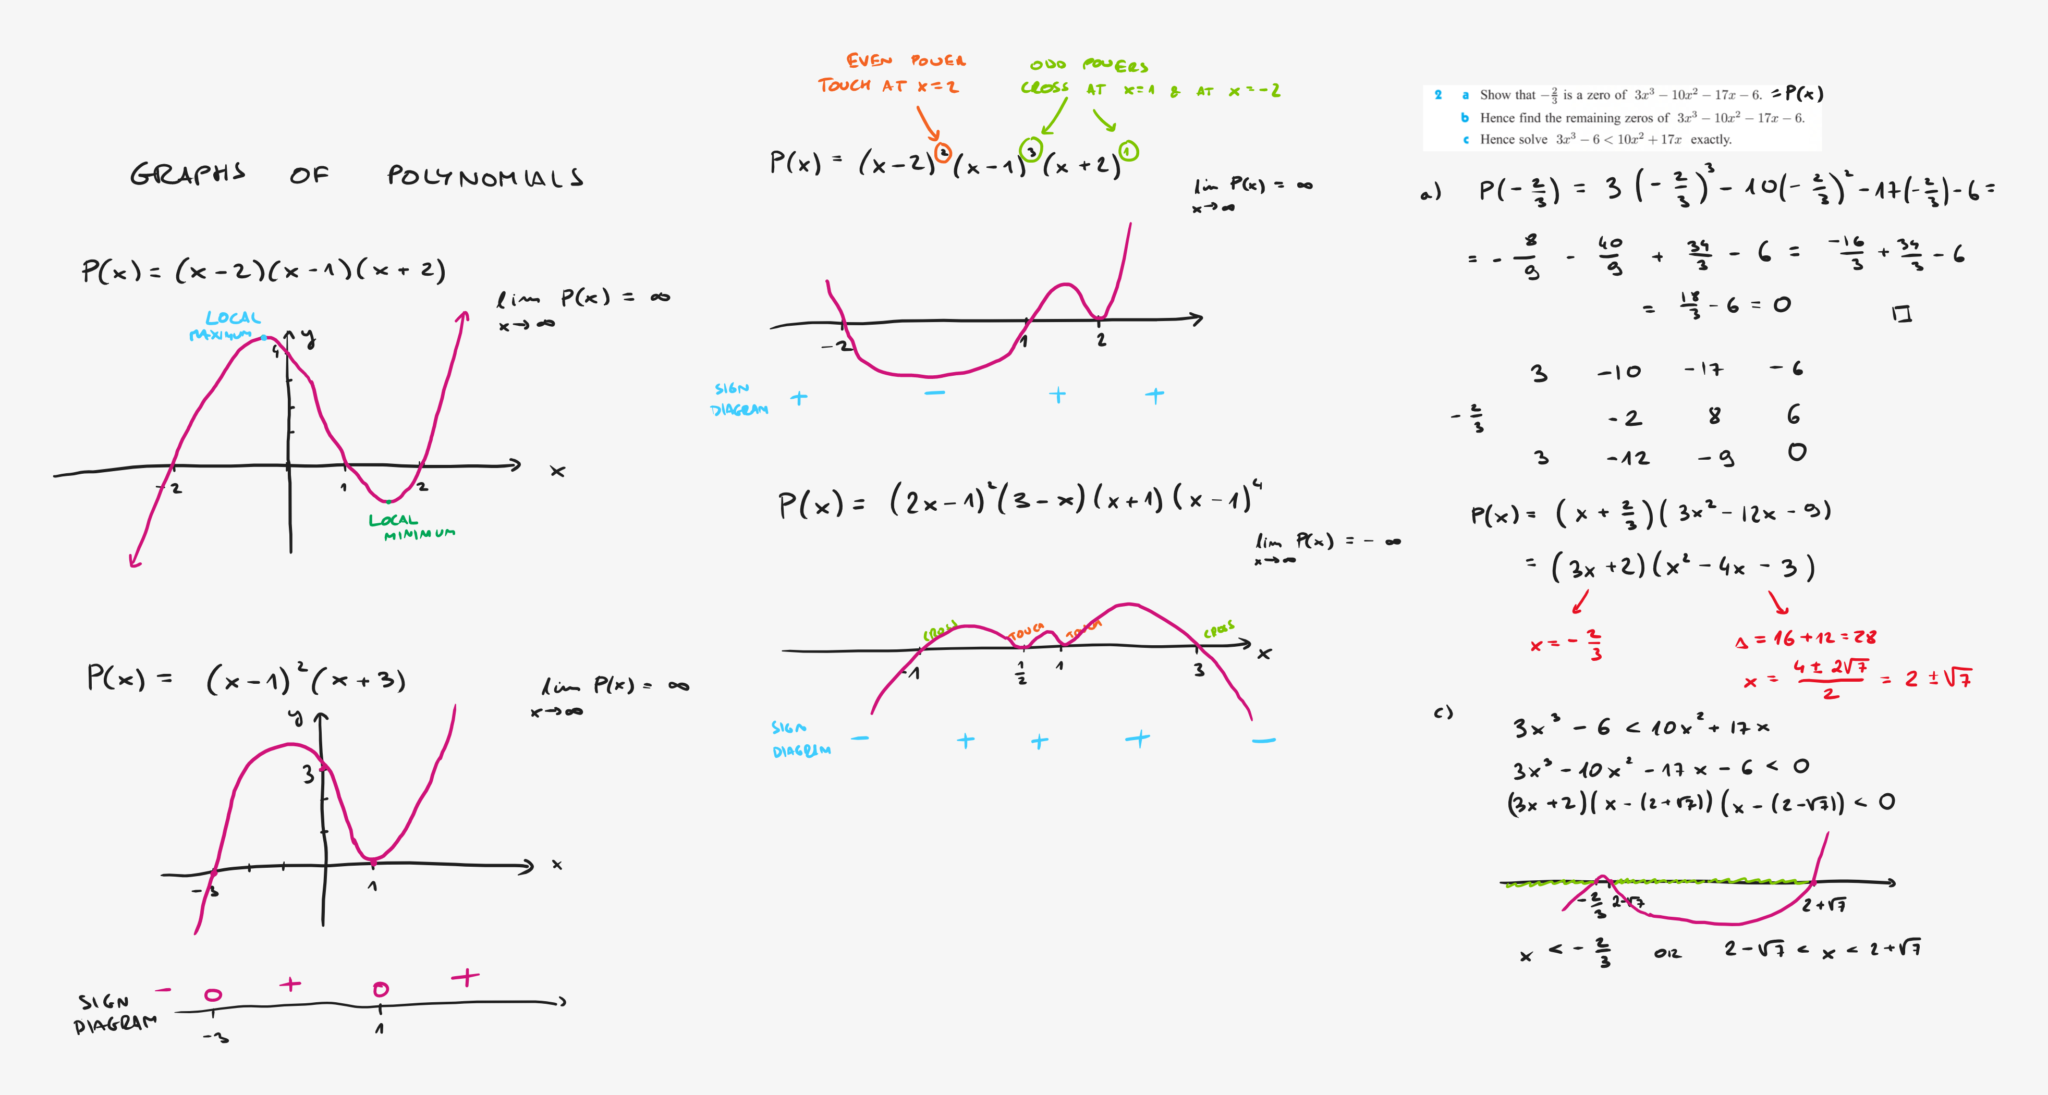 GRAPHS OF POLYNOMIALS
P(x) = (x-2)(x-1)(x+2)
lim P(x) = ∞
x→∞
LOCAL
MAXIMUM
y
4
-2
1
2
x
LOCAL
MINIMUM
P(x) = (x-1)²(x+3)
lim P(x) = ∞
x→∞
y
3
x
-3
1
- 0 + 0 +
SIGN
DIAGRAM
-3 1
EVEN POWER
TOUCH AT x=2
ODD POWERS
CROSS AT x=1 & AT x=-2
P(x) = (x-2)²(x-1)³(x+2)¹
lim P(x) = ∞
x→∞
-2 1 2
SIGN
DIAGRAM + - + +
P(x) = (2x-1)²(3-x)(x+1)(x-1)⁴
lim P(x) = -∞
x→∞
CROSS TOUCH TOUCH CROSS
-1 1/2 1 3 x
SIGN
DIAGRAM - + + + -
2 a Show that -2/3 is a zero of 3x³ - 10x² - 17x - 6. = P(x)
b Hence find the remaining zeros of 3x³ - 10x² - 17x - 6.
c Hence solve 3x³ - 6 < 10x² + 17x exactly.
a) P(-2/3) = 3(-2/3)³ - 10(-2/3)² - 17(-2/3) - 6 =
= -8/9 - 40/9 + 34/3 - 6 = -16/3 + 34/3 - 6
= 18/3 - 6 = 0 □
3 -10 -17 -6
-2/3 -2 8 6
3 -12 -9 0
P(x) = (x + 2/3)(3x² - 12x - 9)
= (3x+2)(x² - 4x - 3)
x = -2/3
Δ = 16+12 = 28
x = 4±2√7/2 = 2±√7
c) 3x³ - 6 < 10x² + 17x
3x³ - 10x² - 17x - 6 < 0
(3x+2)(x-(2+√7))(x-(2-√7)) < 0
-2/3 2-√7 2+√7
x < -2/3 OR 2-√7 < x < 2+√7